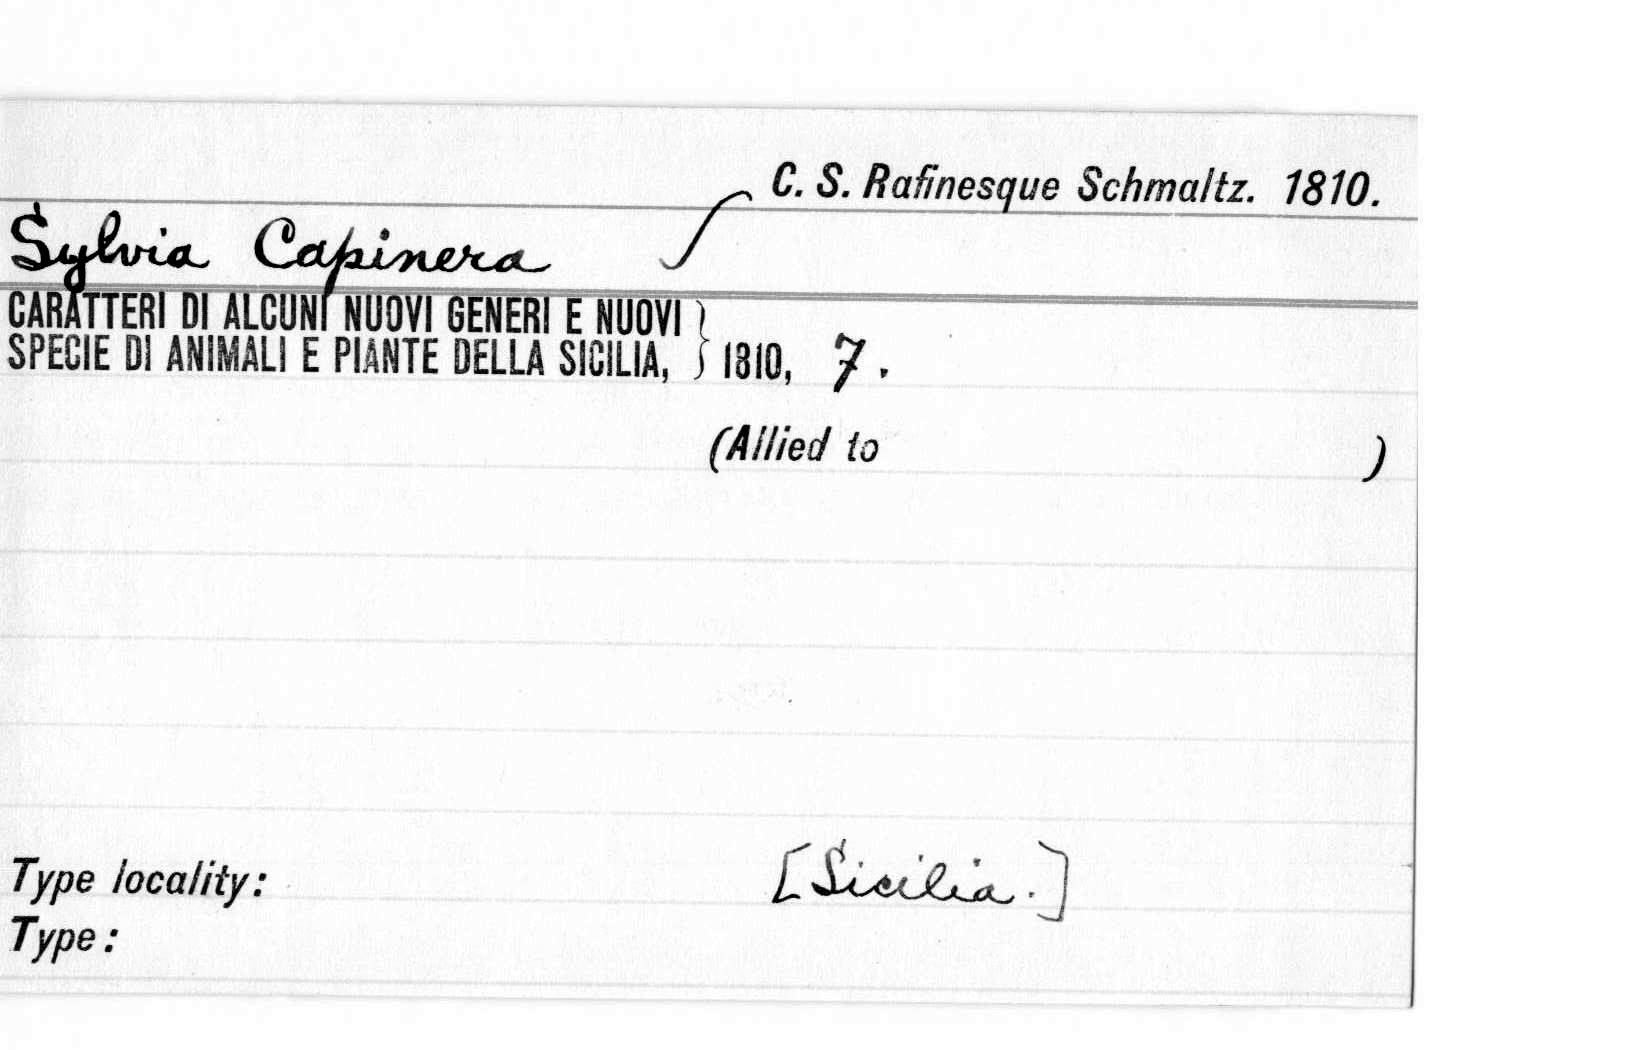 C. S. Rafinesque Schmaltz. 1810.
Sylvia Capinera
CARATTERI DI ALCUNI NUOVI GENERI E NUOVI
SPECIE DI ANIMALI E PIANTE DELLA SICILIA, } 1810, 7.
(Allied to )
Type locality: [Sicilia.]
Type: